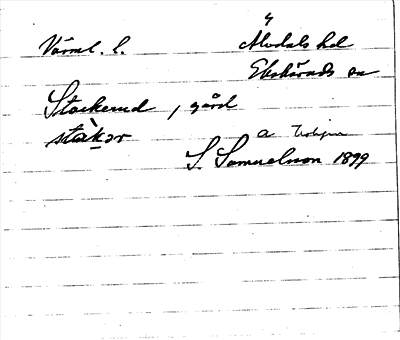 Värml. l. Älvdals hd
Ekshärads sn
Stackerud, gård
stàkər a
S. Samuelsson 1899